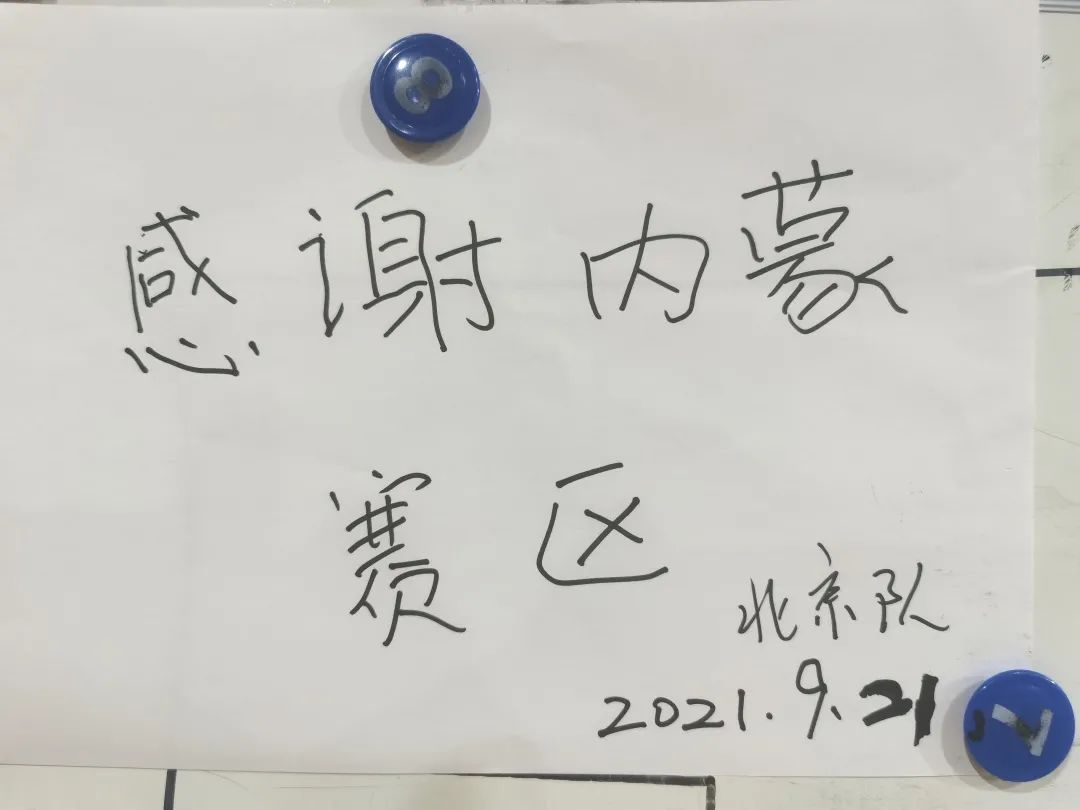 8
感谢内蒙
赛区
北京队
2021.9.21